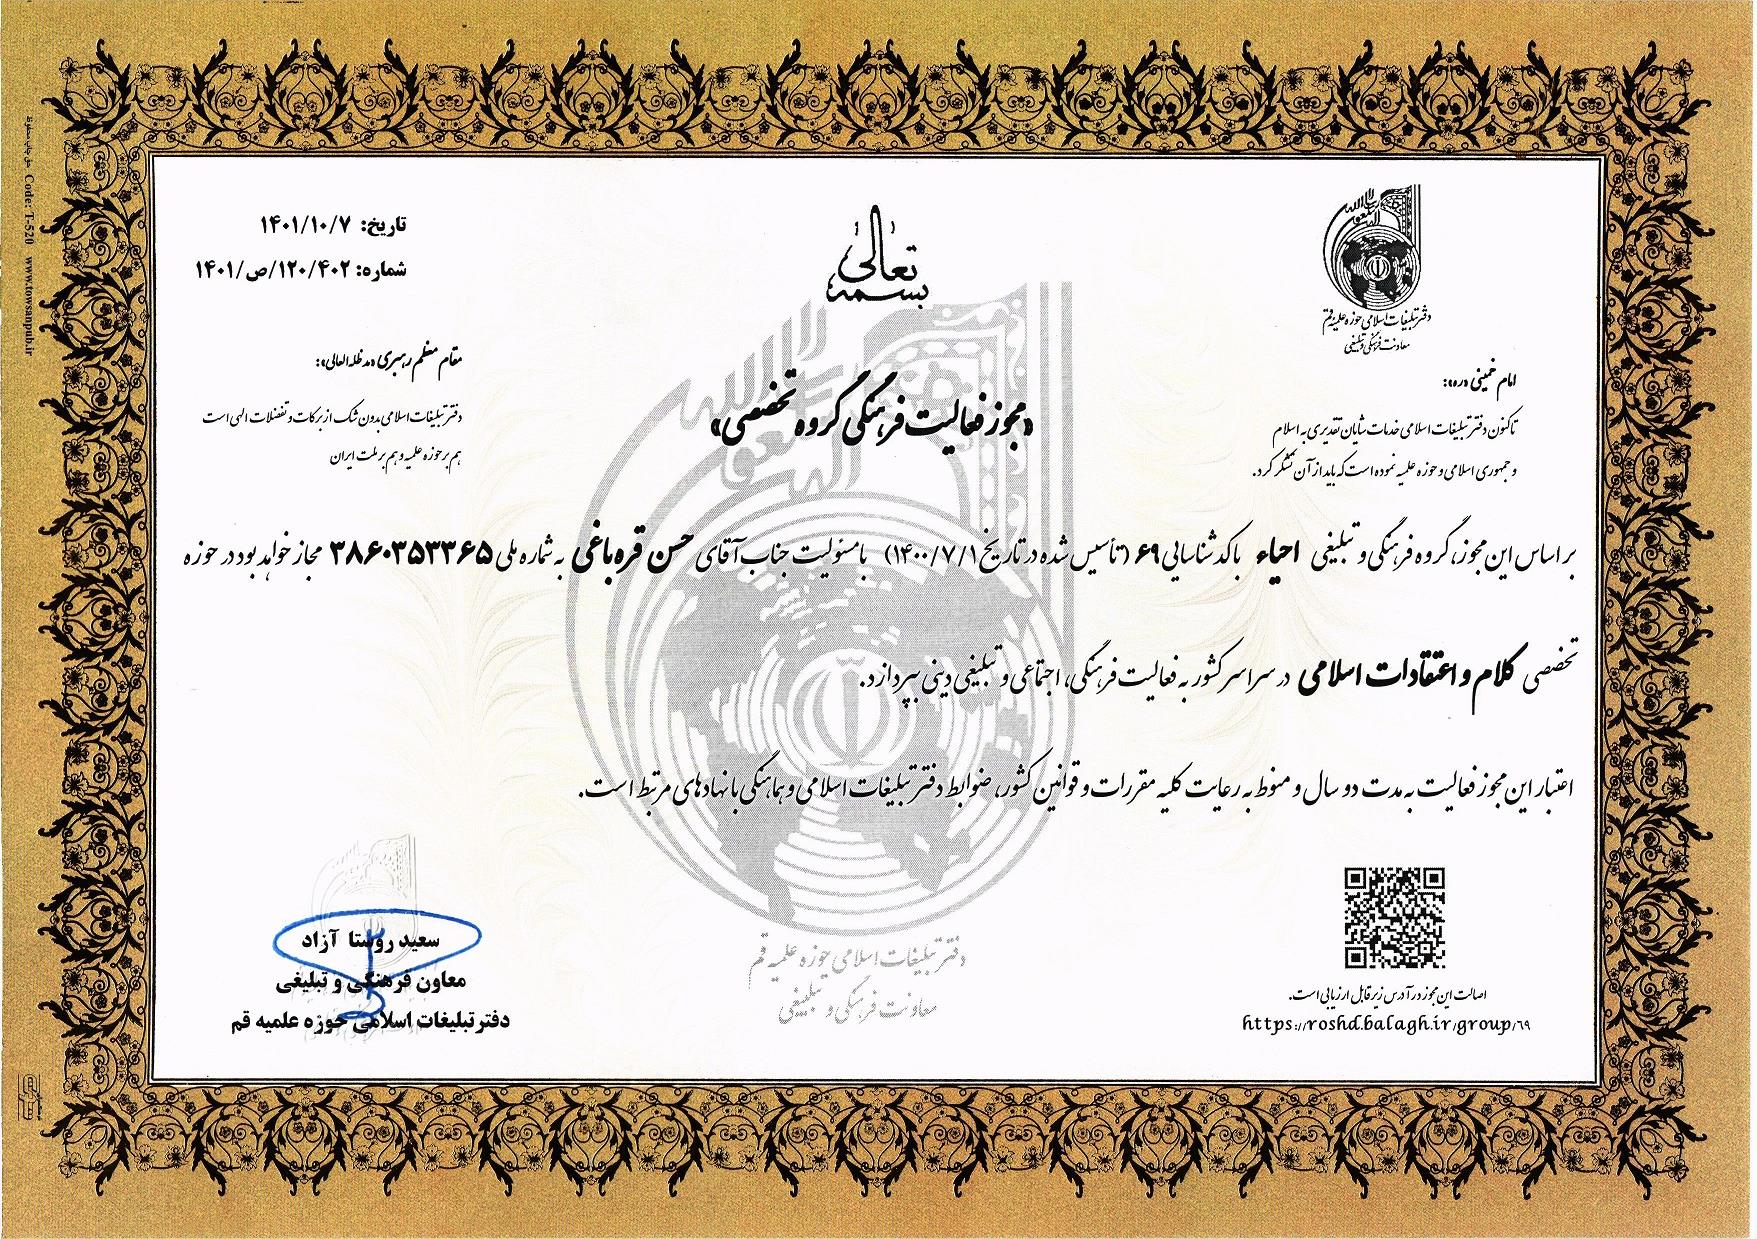 بسمه تعالی
تاریخ: ۱۴۰۱/۱۰/۷
شماره: ۱۲۰/۴۰۲/ص/۱۴۰۱
دفتر تبلیغات اسلامی حوزه علمیه قم
معاونت فرهنگی و تبلیغی
امام خمینی «ره»:
تاکنون دفتر تبلیغات اسلامی خدمات شایان تقدیری به اسلام
و جمهوری اسلامی و حوزه علمیه نموده است که باید از آن تشکر کرد.
مقام معظم رهبری «مدظله العالی»:
دفتر تبلیغات اسلامی بدون شک از برکات و تفضلات الهی است
هم بر حوزه علمیه و هم بر ملت ایران
«مجوز فعالیت فرهنگی گروه تخصصی»
بر اساس این مجوز، گروه فرهنگی و تبلیغی احیاء با کد شناسایی ۶۹ (تأسیس شده در تاریخ ۱۴۰۰/۷/۱) با مسئولیت جناب آقای حسن قره باغی به شماره ملی ۳۸۶۰۳۵۳۳۶۵ مجاز خواهد بود در حوزه
تخصصی کلام و اعتقادات اسلامی در سراسر کشور به فعالیت فرهنگی، اجتماعی و تبلیغی دینی بپردازد.
اعتبار این مجوز فعالیت به مدت دو سال و منوط به رعایت کلیه مقررات و قوانین کشور، ضوابط دفتر تبلیغات اسلامی و هماهنگی با نهادهای مرتبط است.
سعید روستا آزاد
معاون فرهنگی و تبلیغی
دفتر تبلیغات اسلامی حوزه علمیه قم
دفتر تبلیغات اسلامی حوزه علمیه قم
معاونت فرهنگی و تبلیغی
اصالت این مجوز در آدرس زیر قابل ارزیابی است.
https://roshd.balagh.ir/group/۶۹
Code: T-520 www.towsanpub.ir